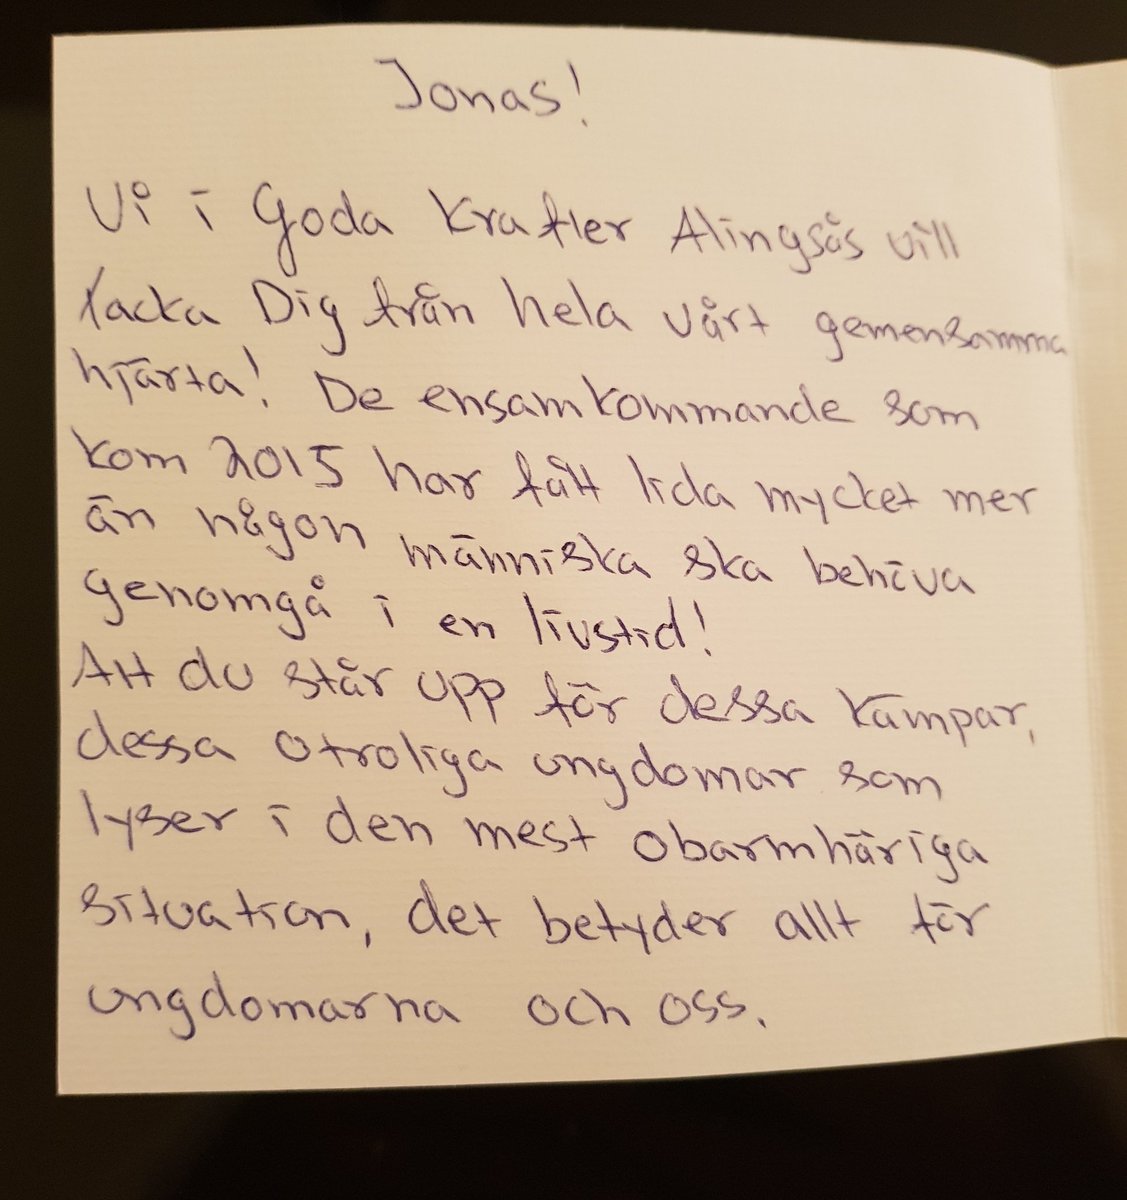 Jonas!
Vi i Goda Krafter Alingsås vill
tacka Dig från hela vårt gemensamma
hjärta! De ensamkommande som
kom 2015 har fått lida mycket mer
än någon människa ska behöva
genomgå i en livstid!
Att du står upp för dessa kämpar,
dessa otroliga ungdomar som
lyser i den mest obarmhäriga
situation, det betyder allt för
ungdomarna och oss.